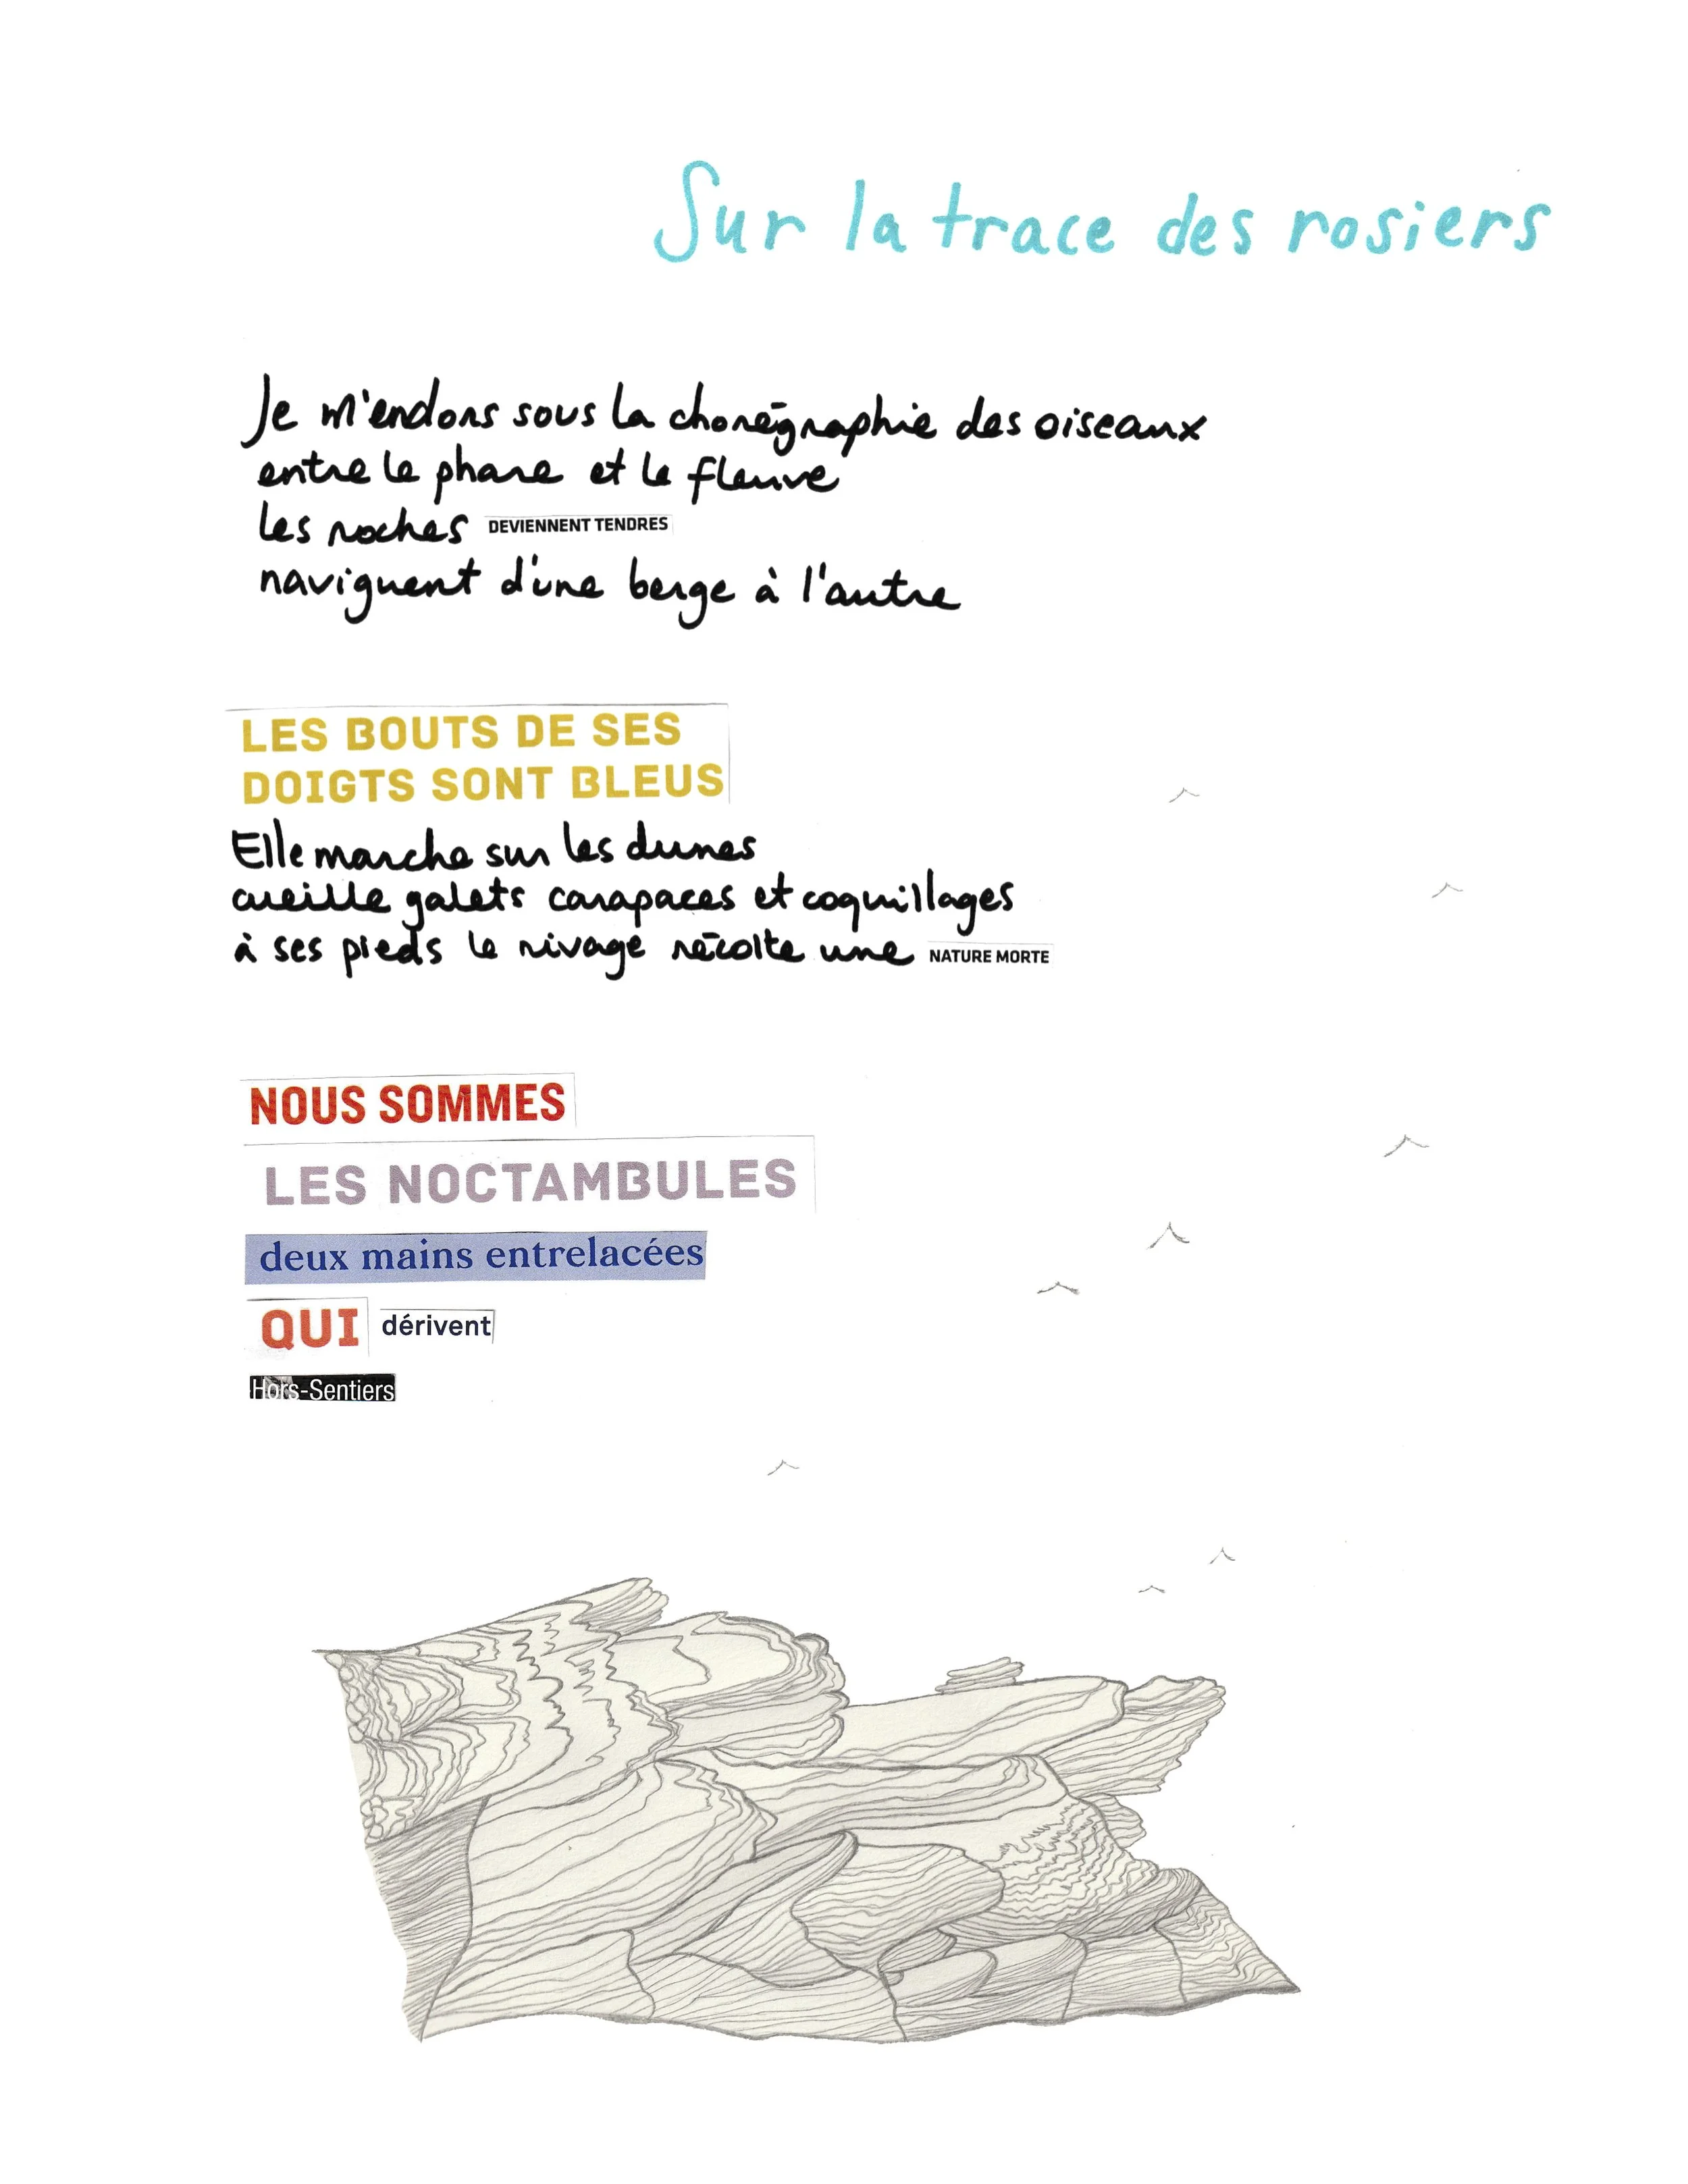 Sur la trace des rosiers
Je m'endors sous la chorégraphie des oiseaux
entre le phare et le fleuve
les roches DEVIENNENT TENDRES
naviguent d'une berge à l'autre
LES BOUTS DE SES
DOIGTS SONT BLEUS
Elle marche sur les dunes
cueille galets carapaces et coquillages
à ses pieds le rivage récolte une NATURE MORTE
NOUS SOMMES
LES NOCTAMBULES
deux mains entrelacées
QUI dérivent
Hors-Sentiers